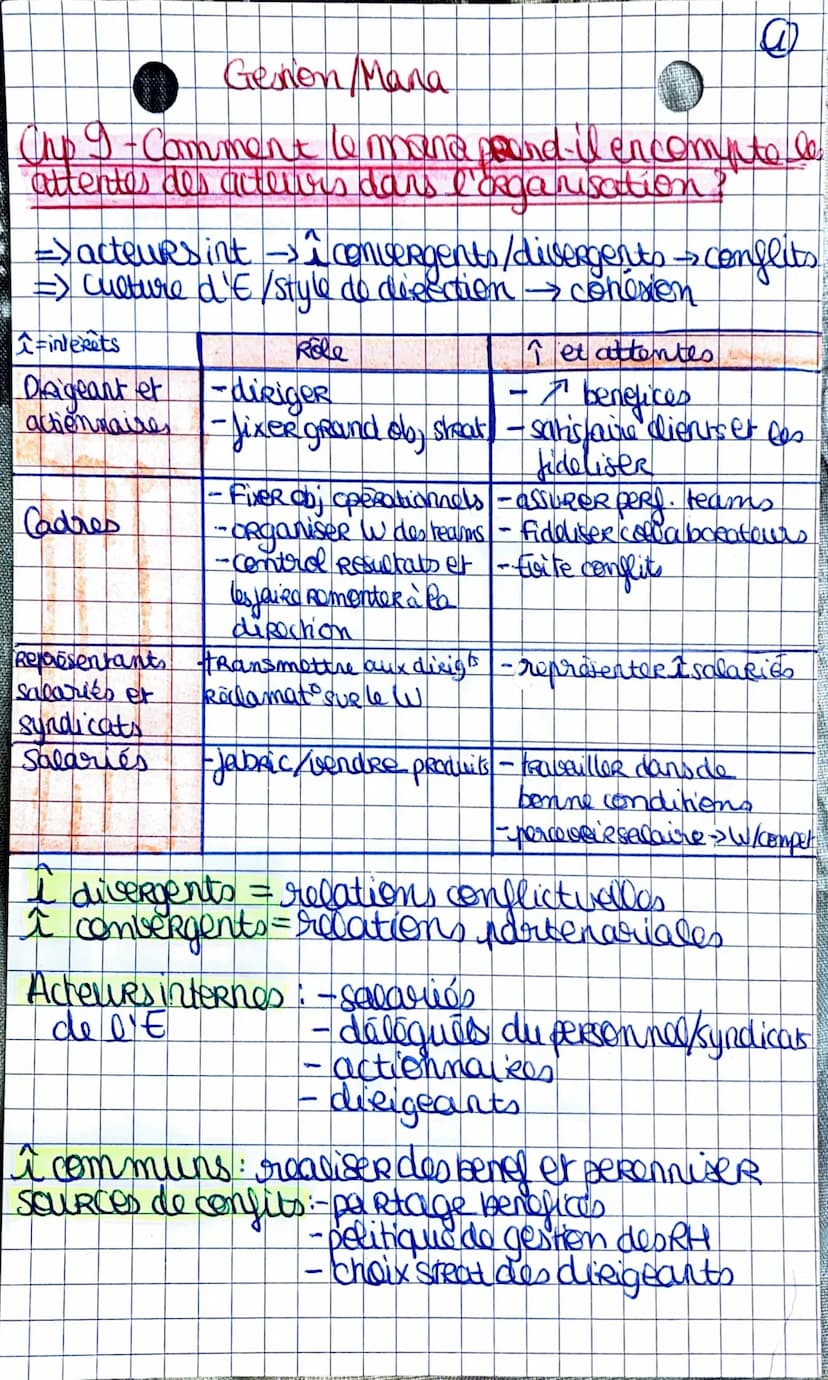 ①
Gestion/Mana
Chp 9 - Comment le mana prend-il en compte les
attentes des acteurs dans l'organisation ?
=> acteurs int → î convergents/divergents → conflits
=> culture d'E/style de direction → cohésion
î = intérêts
Rôle
î et attentes
Dirigeant et
actionnaires
- diriger
- fixer grand obj strat
- ↗ benefices
- satisfaire clients et les
fideliser
Cadres
- Fixer obj opérationnels
- organiser W des teams
- control résultats et
les faire remonter à la
direction
- assurer perf. teams
- fidéliser collaborateurs
- évite conflits
Représentants
salariés et
syndicats
transmettre aux dirigts
réclamat° sur le W
- représenter î salariés
Salariés
- fabric/vendre produits
- travailler dans de
bonne conditions
- percevoir salaire → W/compet
î divergents = relations conflictuelles
î convergents = relations partenariales
Acteurs internes : - salariés
de l'E - délégués du personnel/syndicats
- actionnaires
- dirigeants
î communs : réaliser des benef et perenniser
sources de conflits : - partage benefices
- politique de gestion des RH
- choix strat des dirigeants